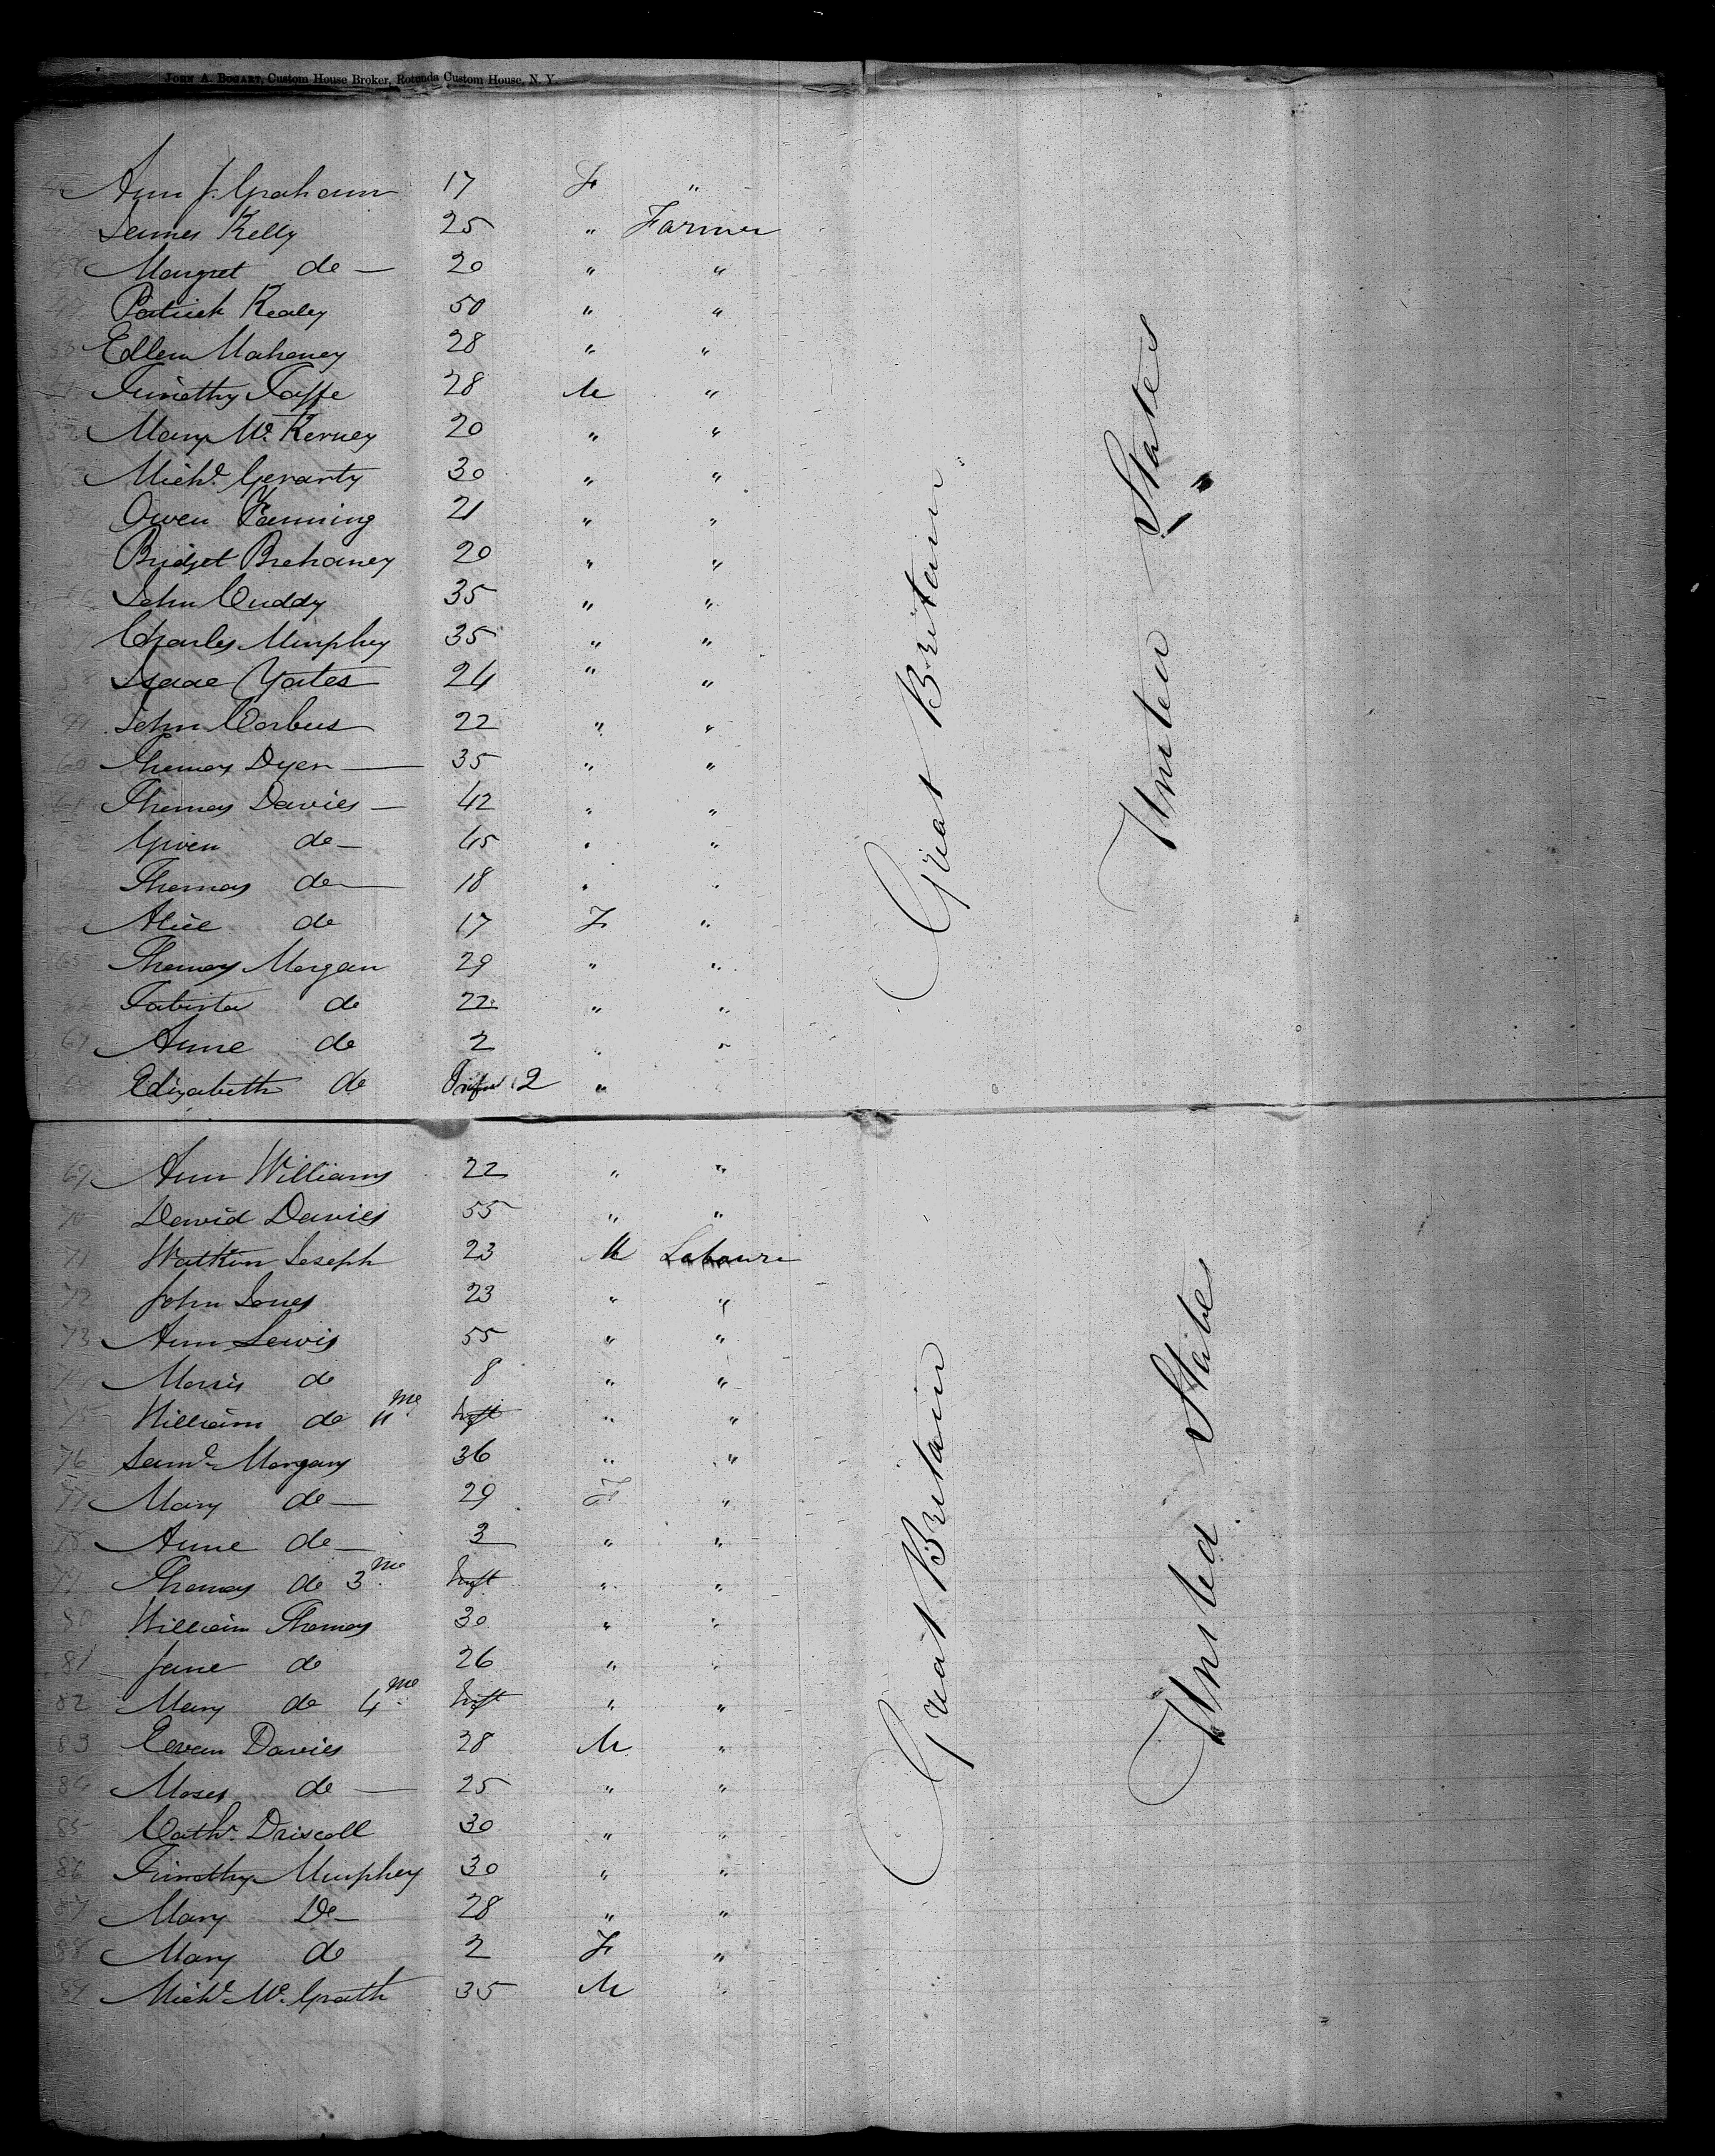 JOHN A. BOGART, Custom House Broker, Rotunda Custom House, N. Y.
Ann J. Graham 17 F "
James Kelly 25 " Farmer
Margret do — 20 " "
49 Patrick Kealey 50 " "
50 Ellen Mahoney 28 " "
51 Timothy Taffe 28 M "
52 Mary Mc. Kerney 20 " "
53 Michl. Gerarty 30 " "
Owen Fanning 21 " "
Bridget Brehaney 20 " "
56 John Cuddy 35 " "
57 Charles Murphey 35 " "
58 Isaac Yates 24 " "
59 John Corbus 22 " "
60 Thomas Dyer — 35 " "
61 Thomas Davies — 42 " "
do — 45 " "
Thomas do — 18 " "
Alice do 17 F "
65 Thomas Morgan 29 " "
do 22 " "
67 Anne do 2 " "
68 Elizabeth do 2 "
69 Ann Williams 22 " "
70 David Davies 55 " "
71 Watkin Joseph 23 M
72 John Jones 23 " "
73 Ann Lewis 55 " "
74 Morris do 8 " "
75 William do 11 mo Inft " "
76 Saml. Morgans 36 " "
77 Mary do — 29 F "
78 Anne do — 3 " "
79 Thomas do 3 mo Inft " "
80 William Thomas 30 " "
81 Jane do 26 " "
82 Mary do 4 mo Inft " "
83 Eevan Davies 28 M "
84 Moses do — 25 " "
85 Cathr. Driscoll 30 " "
86 Timothy Murphey 30 " "
87 Mary Do — 28 " "
88 Mary do 2 F "
89 Michl. Mc. Grath 35 M "
Great Britain
United States
Great Britain
United States